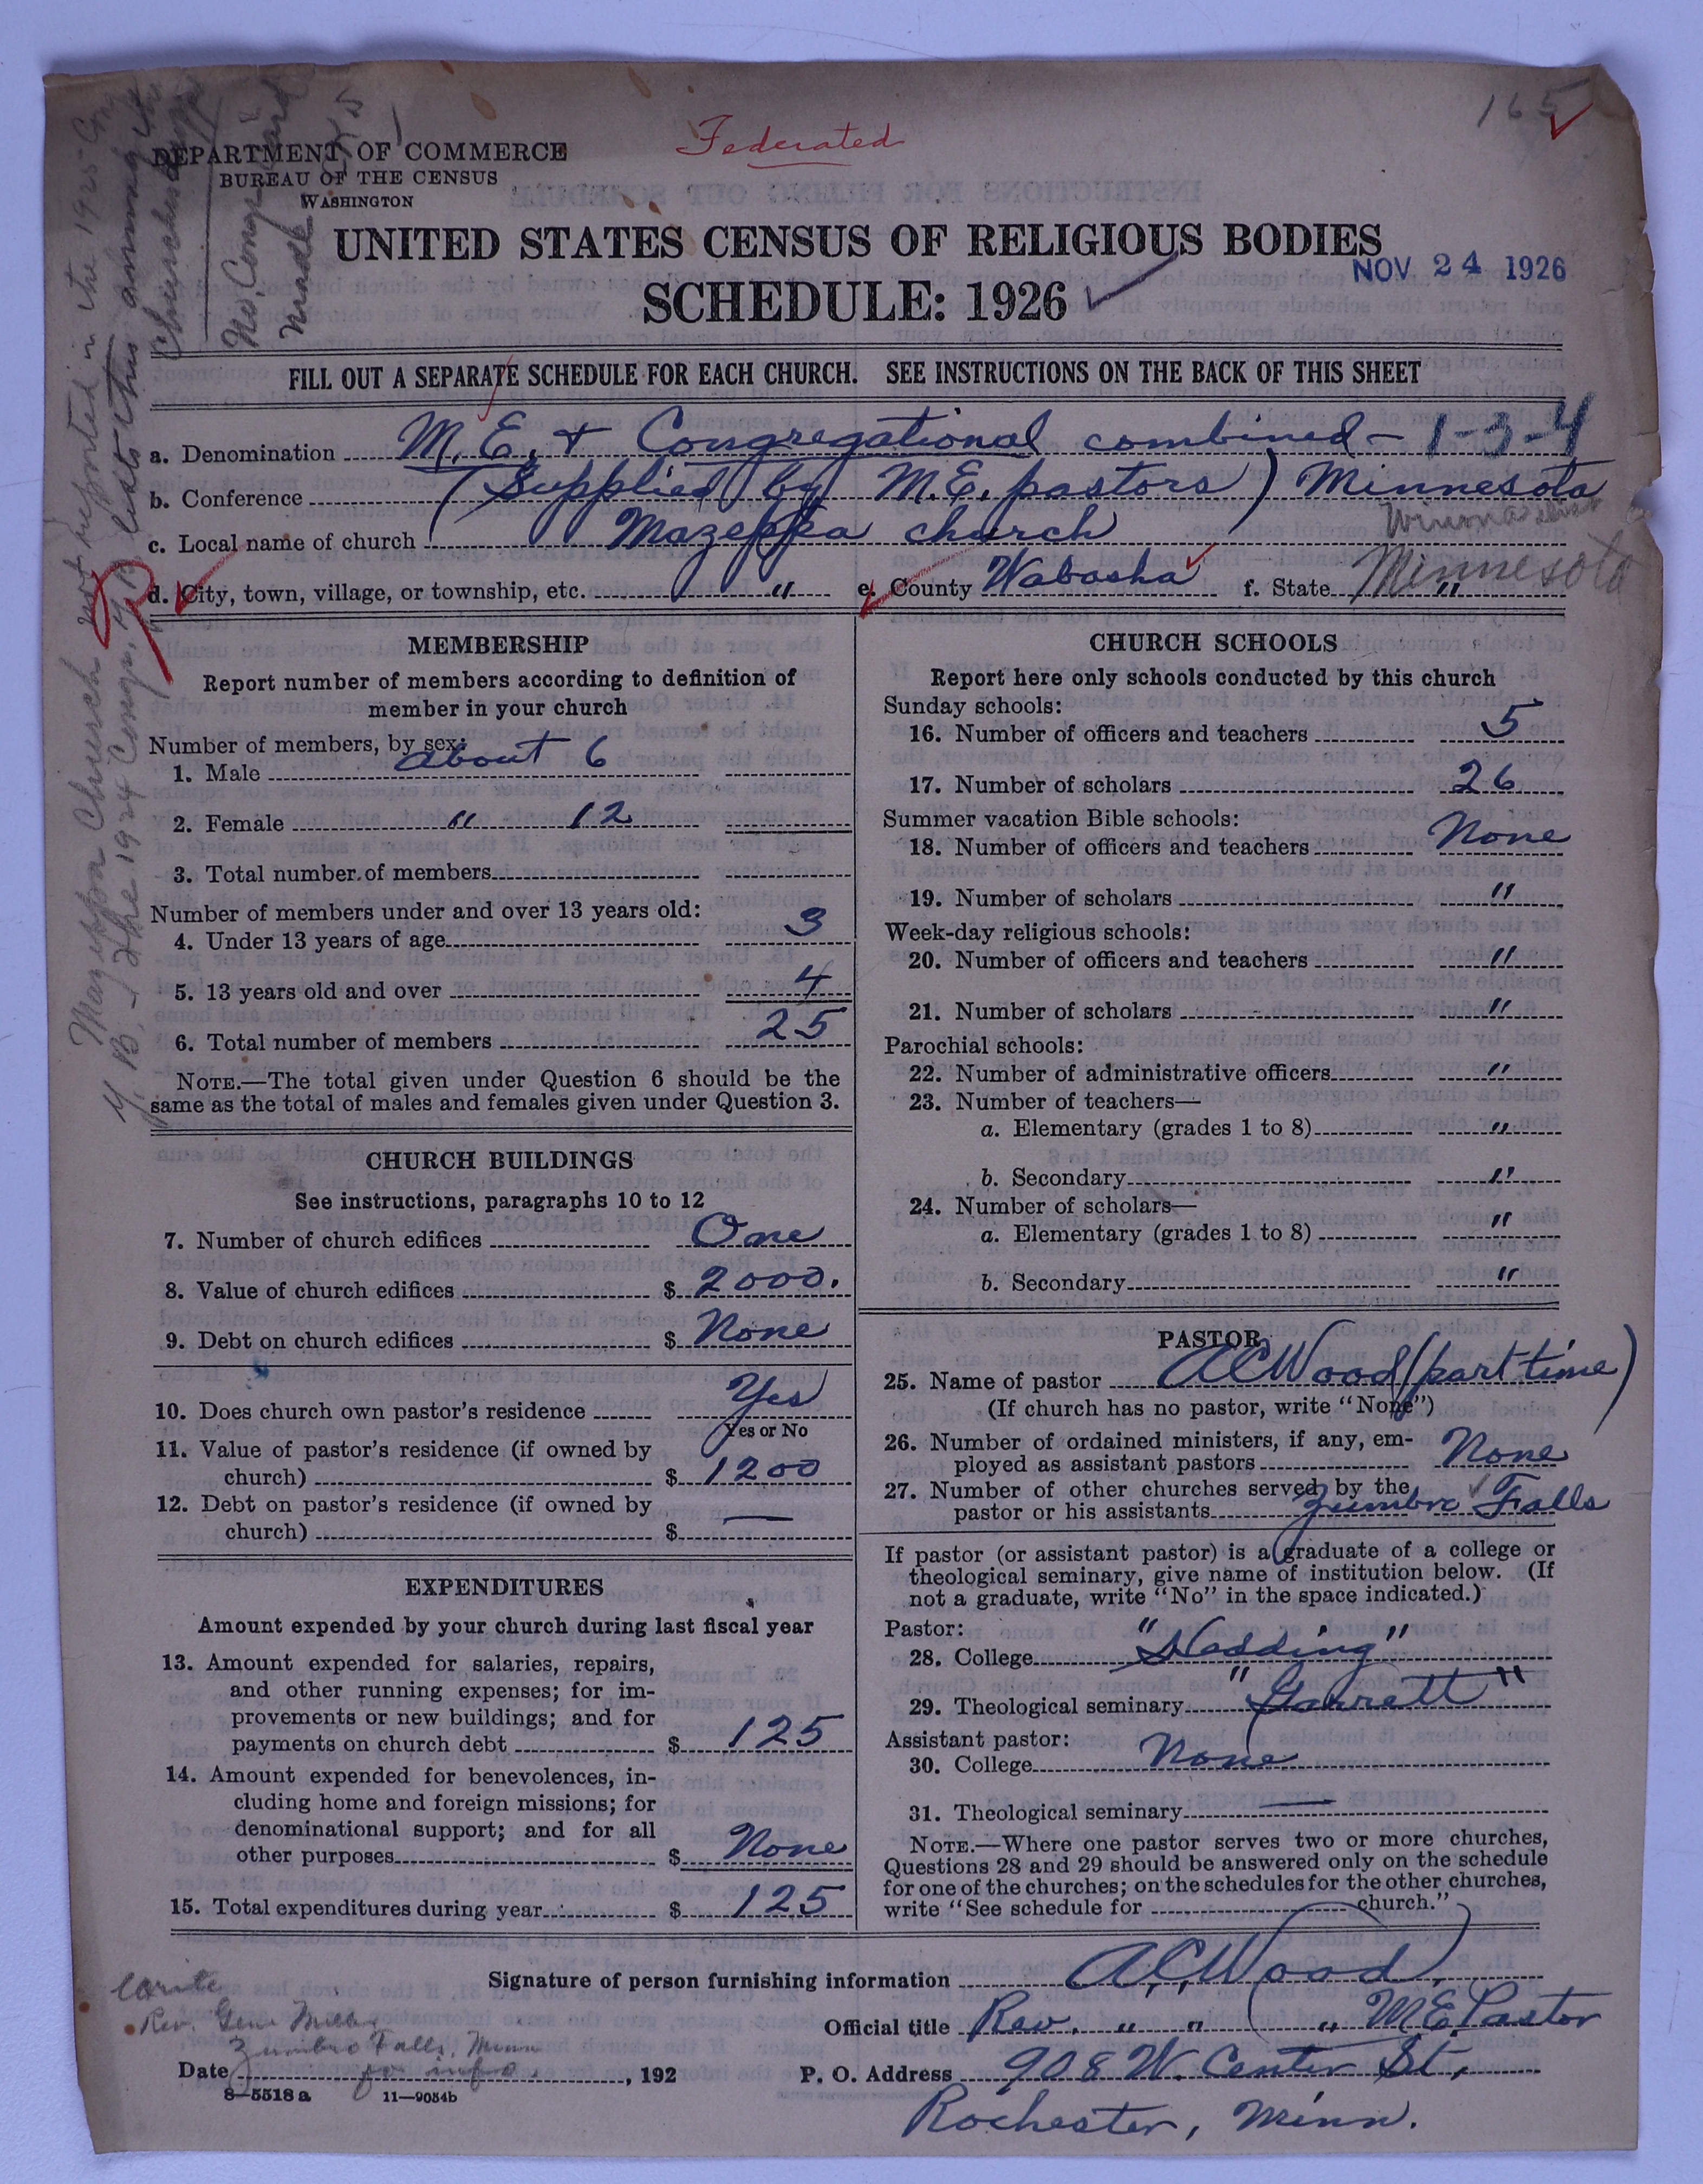 165
Federated
DEPARTMENT OF COMMERCE
BUREAU OF THE CENSUS
WASHINGTON
UNITED STATES CENSUS OF RELIGIOUS BODIES
NOV 24 1926
SCHEDULE: 1926
FILL OUT A SEPARATE SCHEDULE FOR EACH CHURCH. SEE INSTRUCTIONS ON THE BACK OF THIS SHEET
a. Denomination M.E. + Congregational combined - 1-3-4
b. Conference (Supplied by M.E. pastors) Minnesota
Winona Dist
c. Local name of church Mazeppa church
d. City, town, village, or township, etc. " e. County Wabasha f. State " Minnesota
MEMBERSHIP
Report number of members according to definition of
member in your church
Number of members, by sex:
1. Male about 6
2. Female " 12
3. Total number of members
Number of members under and over 13 years old:
4. Under 13 years of age 3
5. 13 years old and over 4
6. Total number of members 25
NOTE.—The total given under Question 6 should be the
same as the total of males and females given under Question 3.
CHURCH BUILDINGS
See instructions, paragraphs 10 to 12
7. Number of church edifices One
8. Value of church edifices $ 2000.
9. Debt on church edifices $ None
10. Does church own pastor's residence Yes
Yes or No
11. Value of pastor's residence (if owned by
church) $ 1200
12. Debt on pastor's residence (if owned by
church) $ —
EXPENDITURES
Amount expended by your church during last fiscal year
13. Amount expended for salaries, repairs,
and other running expenses; for im-
provements or new buildings; and for
payments on church debt $ 125
14. Amount expended for benevolences, in-
cluding home and foreign missions; for
denominational support; and for all
other purposes $ None
15. Total expenditures during year $ 125
CHURCH SCHOOLS
Report here only schools conducted by this church
Sunday schools:
16. Number of officers and teachers 5
17. Number of scholars 26
Summer vacation Bible schools:
18. Number of officers and teachers None
19. Number of scholars "
Week-day religious schools:
20. Number of officers and teachers "
21. Number of scholars "
Parochial schools:
22. Number of administrative officers "
23. Number of teachers—
a. Elementary (grades 1 to 8) "
b. Secondary "
24. Number of scholars—
a. Elementary (grades 1 to 8) "
b. Secondary "
PASTOR
25. Name of pastor A C Wood (part time)
(If church has no pastor, write "None")
26. Number of ordained ministers, if any, em-
ployed as assistant pastors None
27. Number of other churches served by the
pastor or his assistants Zumbro Falls
If pastor (or assistant pastor) is a graduate of a college or
theological seminary, give name of institution below. (If
not a graduate, write "No" in the space indicated.)
Pastor:
28. College "Hedding"
29. Theological seminary "Garrett"
Assistant pastor:
30. College None
31. Theological seminary —
NOTE.—Where one pastor serves two or more churches,
Questions 28 and 29 should be answered only on the schedule
for one of the churches; on the schedules for the other churches,
write "See schedule for church."
Signature of person furnishing information A.C. Wood
Official title Rev. " " " M.E. Pastor
Date , 192
P. O. Address 908 W. Center St,
Rochester, Minn.
8—5518 a 11—9054b
Write
Rev. Gene Miller
Zumbro Falls, Minn
for info.
Mazeppa Church not reported in the 1925 Cong
Y. B. - The 1924 Congr. Y.B. lists this among the
No. Congr. Card
Made